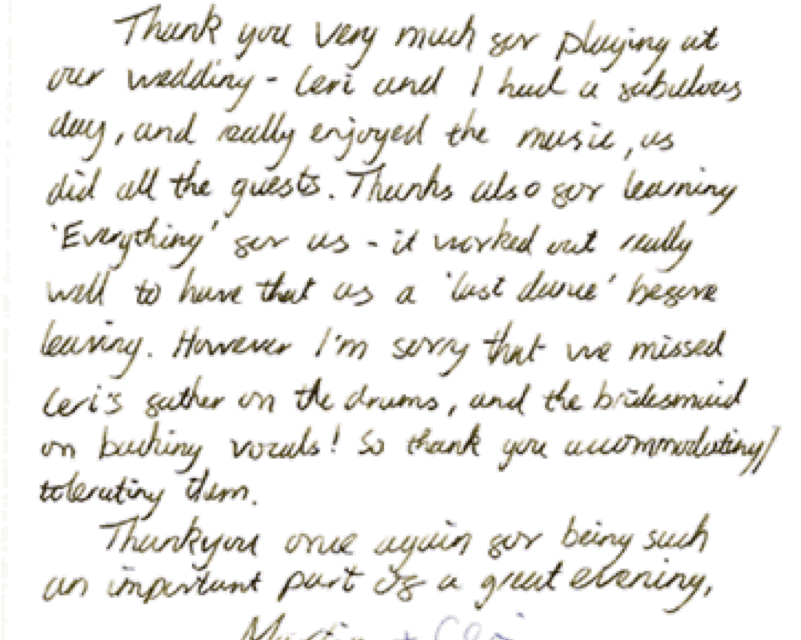 Thank you very much for playing at
our wedding - Ceri and I had a fabulous
day, and really enjoyed the music, as
did all the guests. Thanks also for learning
'Everything' for us - it worked out really
well to have that as a 'last dance' before
leaving. However I'm sorry that we missed
Ceri's father on the drums, and the bridesmaid
on backing vocals! So thank you accommodating/
tolerating them.
Thankyou once again for being such
an important part of a great evening,